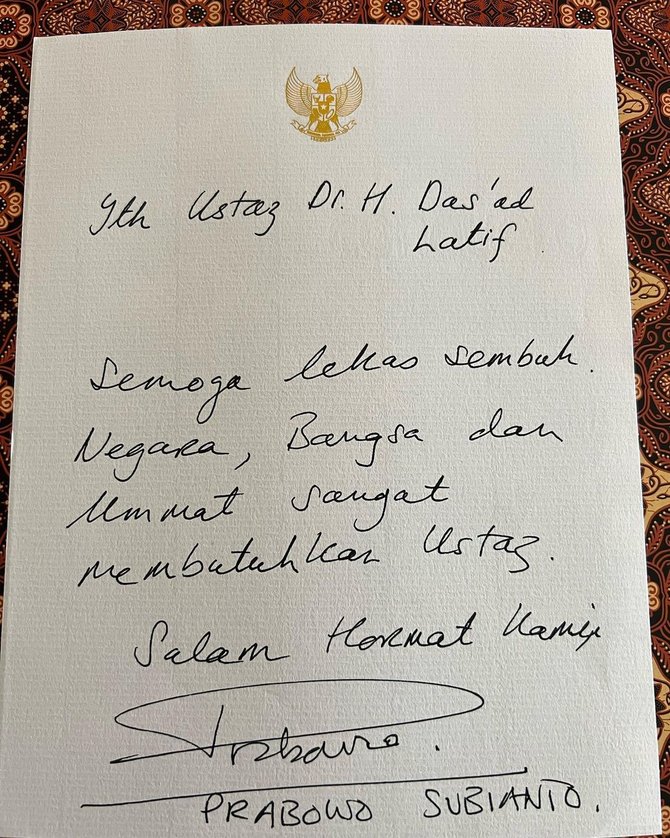 Yth Ustaz Dr. H. Das'ad
Latif
Semoga lekas sembuh.
Negara, Bangsa dan
Ummat sangat
membutuhkan Ustaz.
Salam Hormat Kami
Prabowo.
PRABOWO SUBIANTO.